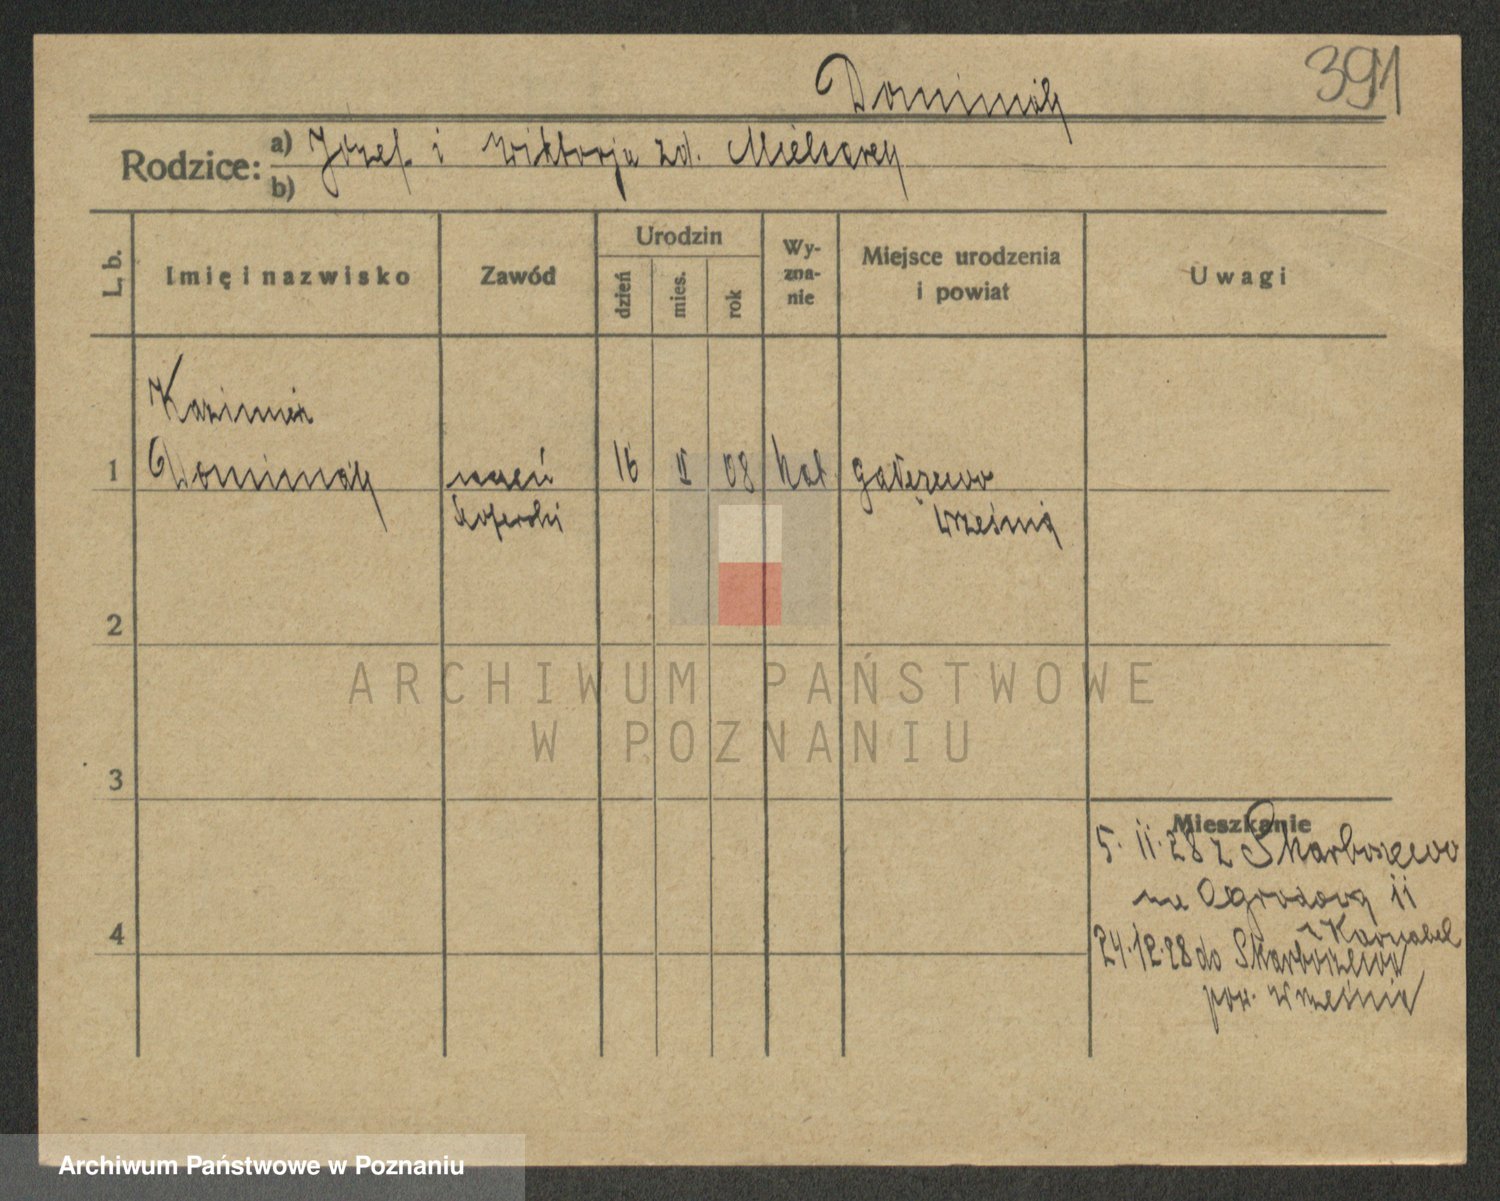 391
Dominiak
Rodzice: a) Józef i Wiktorja zd. Mielcarek
b)
L. b.
Imię i nazwisko
Zawód
Urodzin
dzień
mies.
rok
Wy-
zna-
nie
Miejsce urodzenia
i powiat
Uwagi
Kazimierz
1 Dominiak uczeń 16 II 08 kat Gałęzewo
Września
2
3
4
Mieszkanie
5. 11. 28 z Skarboszewo
na Ogrodową 11
24.12.28 do Skarboszewo
pow. Września
ARCHIWUM PAŃSTWOWE
W POZNANIU
Archiwum Państwowe w Poznaniu